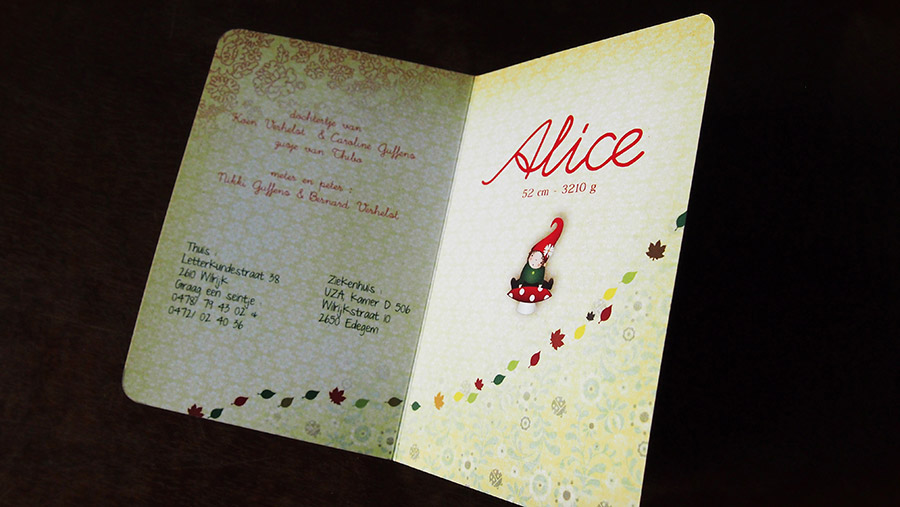 dochtertje van
Koen Verhelst & Caroline Guffens
zusje van Thibo
meter en peter :
Nikki Guffens & Bernard Verhelst
Thuis :
Letterkundestraat 38
2610 Wilrijk
Graag een seintje :
0478/ 79 43 02 &
0472/ 02 40 36
Ziekenhuis :
UZA Kamer D 506
Wilrijkstraat 10
2650 Edegem
Alice
52 cm - 3210 g